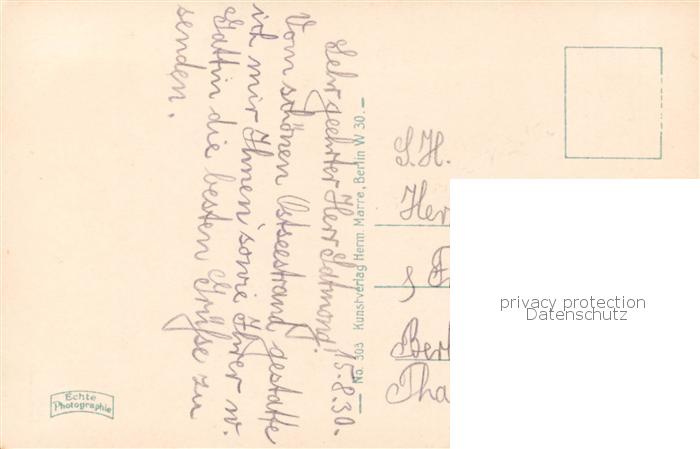 15.8.30.
Sehr geehrter Herr
Vom schönen Ostseestrand gestatte
ich mir Ihnen sowie Ihrer w.
Gattin die besten Grüße zu
senden.
No. 303 Kunstverlag Herm. Marre, Berlin W 30.
S.H.
Her
Berl
Tha
Echte
Photographie
privacy protection
Datenschutz